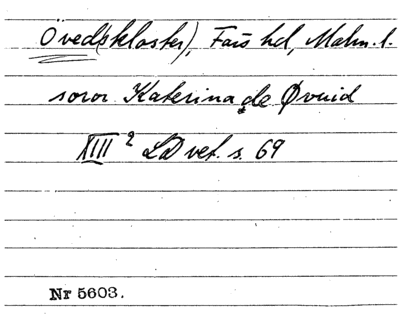 Öved(skloster), Färs hd, Malm. l.
soror Katerina de Øvuid
XIII 2 LD vet. s. 69
Nr 5603.